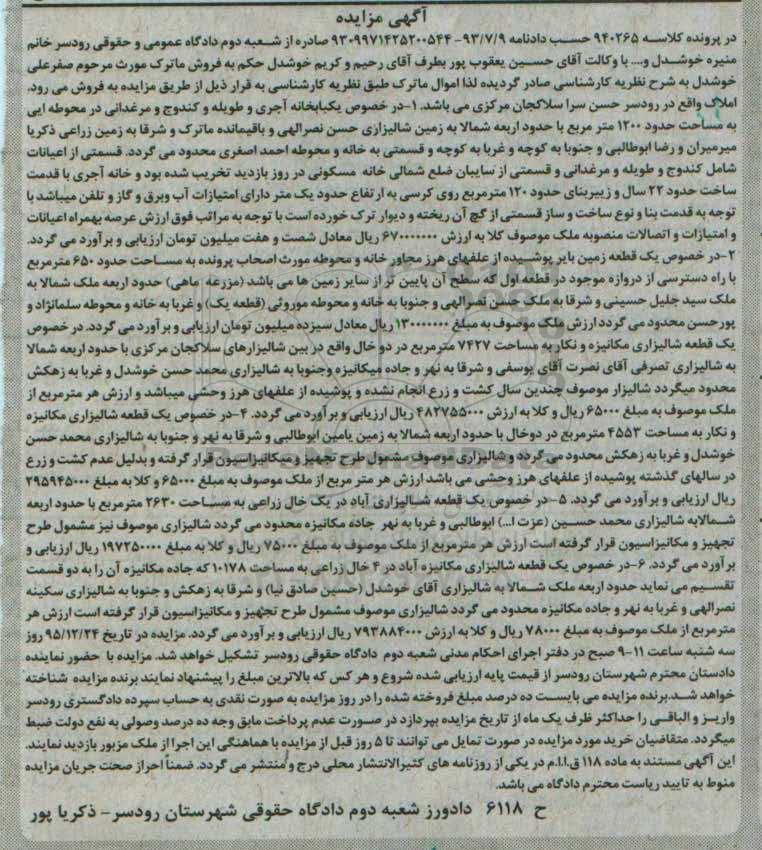 آگهی مزایده
در پرونده کلاسه ۹۴۰۲۶۵ حسب دادنامه ۹۳/۷/۹- ۹۳۰۹۹۷۱۴۲۵۲۰۰۵۴۴ صادره از شعبه دوم دادگاه عمومی و حقوقی رودسر خانم
منیره خوشدل و... با وکالت آقای حسین یعقوب پور بطرف آقای رحیم و کریم خوشدل حکم به فروش ماترک مورث مرحوم صفرعلی
خوشدل به شرح نظریه کارشناسی صادر گردیده لذا اموال ماترک طبق نظریه کارشناسی به قرار ذیل از طریق مزایده به فروش می رود.
املاک واقع در رودسر حسن سرا سلاکجان مرکزی می باشد. ۱-در خصوص یکبابخانه آجری و طویله و کندوج و مرغدانی در محوطه ایی
به مساحت حدود ۱۲۰۰ متر مربع با حدود اربعه شمالا به زمین شالیزازی حسن نصرالهی و باقیمانده ماترک و شرقا به زمین زراعی ذکریا
میرمیران و رضا ابوطالبی و جنوبا به کوچه و غربا به کوچه و قسمتی به خانه و محوطه احمد اصغری محدود می گردد. قسمتی از اعیانات
شامل کندوج و طویله و مرغدانی و قسمتی از سایبان ضلع شمالی خانه مسکونی در روز بازدید تخریب شده بود و خانه آجری با قدمت
ساخت حدود ۲۲ سال و زیربنای حدود ۱۲۰ مترمربع روی کرسی به ارتفاع حدود یک متر دارای امتیازات آب وبرق و گاز و تلفن میباشد با
توجه به قدمت بنا و نوع ساخت و ساز قسمتی از گچ آن ریخته و دیوار ترک خورده است با توجه به مراتب فوق ارزش عرصه بهمراه اعیانات
و امتیازات و اتصالات منصوبه ملک موصوف کلا به ارزش ۶۷۰۰۰۰۰۰۰ ریال معادل شصت و هفت میلیون تومان ارزیابی و برآورد می گردد.
۲-در خصوص یک قطعه زمین بایر پوشیده از علفهای هرز مجاور خانه و محوطه مورث اصحاب پرونده به مساحت حدود ۶۵۰ مترمربع
با راه دسترسی از دروازه موجود در قطعه اول که سطح آن پایین تر از سایر زمین ها می باشد (مزرعه ماهی) حدود اربعه ملک شمالا به
ملک سید جلیل حسینی و شرقا به ملک حسن نصرالهی و جنوبا به خانه و محوطه موروثی (قطعه یک) و غربا به خانه و محوطه سلمانژاد و
پورحسن محدود می گردد ارزش ملک موصوف به مبلغ ۱۳۰۰۰۰۰۰۰ ریال معادل سیزده میلیون تومان ارزیابی و برآورد می گردد. در خصوص
یک قطعه شالیزاری مکانیزه و نکار به مساحت ۷۴۲۷ مترمربع در دو خال واقع در بین شالیزارهای سلاکجان مرکزی با حدود اربعه شمالا
به شالیزاری تصرفی آقای نصرت آقای یوسفی و شرقا به نهر و جاده میکانیزه وجنوبا به شالیزاری محمد حسن خوشدل و غربا به زهکش
محدود میگردد شالیزار موصوف چندین سال کشت و زرع انجام نشده و پوشیده از علفهای هرز وحشی میباشد و ارزش هر مترمربع از
ملک موصوف به مبلغ ۶۵۰۰۰ ریال و کلا به ارزش ۴۸۲۷۵۵۰۰۰ ریال ارزیابی و برآورد می گردد. ۴-در خصوص یک قطعه شالیزاری مکانیزه
و نکار به مساحت ۴۵۵۳ مترمربع در دوخال با حدود اربعه شمالا به زمین یامین ابوطالبی و شرقا به نهر و جنوبا به شالیزاری محمد حسن
خوشدل و غربا به زهکش محدود می گردد و شالیزاری موصوف مشمول طرح تجهیز و میکانیزاسیون قرار گرفته و بدلیل عدم کشت و زرع
در سالهای گذشته پوشیده از علفهای هرز وحشی می باشد ارزش هر متر مربع از ملک موصوف به مبلغ ۶۵۰۰۰ و کلا به مبلغ ۲۹۵۹۴۵۰۰۰
ریال ارزیابی و برآورد می گردد. ۵-در خصوص یک قطعه شالیزاری آباد در یک خال زراعی به مساحت ۲۶۳۰ مترمربع با حدود اربعه
شمالابه شالیزاری محمد حسین (عزت ا...) ابوطالبی و غربا به نهر جاده مکانیزه محدود می گردد شالیزاری موصوف نیز مشمول طرح
تجهیز و مکانیزاسیون قرار گرفته است ارزش هر مترمربع از ملک موصوف به مبلغ ۷۵۰۰۰ ریال و کلا به مبلغ ۱۹۷۲۵۰۰۰۰ ریال ارزیابی و
برآورد می گردد. ۶-در خصوص یک قطعه شالیزاری مکانیزه آباد در ۴ خال زراعی به مساحت ۱۰۱۷۸ که جاده مکانیزه آن را به دو قسمت
تقسیم می نماید حدود اربعه ملک شمالا به شالیزاری آقای خوشدل (حسین صادق نیا) و شرقا به زهکش و جنوبا به شالیزاری سکینه
نصرالهی و غربا به نهر و جاده مکانیزه محدود می گردد شالیزاری موصوف مشمول طرح تجهیز و مکانیزاسیون قرار گرفته است ارزش هر
مترمربع از ملک موصوف به مبلغ ۷۸۰۰۰ ریال و کلا به ارزش ۷۹۳۸۸۴۰۰۰ ریال ارزیابی و برآورد می گردد. مزایده در تاریخ ۹۵/۱۲/۲۴ روز
سه شنبه ساعت ۱۱-۹ صبح در دفتر اجرای احکام مدنی شعبه دوم دادگاه حقوقی رودسر تشکیل خواهد شد. مزایده با حضور نماینده
دادستان محترم شهرستان رودسر از قیمت پایه ارزیابی شده شروع و هر کس که بالاترین مبلغ را پیشنهاد نمایند برنده مزایده شناخته
خواهد شد.برنده مزایده می بایست ده درصد مبلغ فروخته شده را در روز مزایده به صورت نقدی به حساب سپرده دادگستری رودسر
واریز و الباقی را حداکثر ظرف یک ماه از تاریخ مزایده بپردازد در صورت عدم پرداخت مابق وجه ده درصد وصولی به نفع دولت ضبط
میگردد. متقاضیان خرید مورد مزایده در صورت تمایل می توانند تا ۵ روز قبل از مزایده با هماهنگی این اجرا از ملک مزبور بازدید نمایند.
این آگهی مستند به ماده ۱۱۸ ق.ا.ا.م در یکی از روزنامه های کثیرالانتشار محلی درج و منتشر می گردد. ضمنا احراز صحت جریان مزایده
منوط به تایید ریاست محترم دادگاه می باشد.
ح ۶۱۱۸ دادورز شعبه دوم دادگاه حقوقی شهرستان رودسر- ذکریا پور